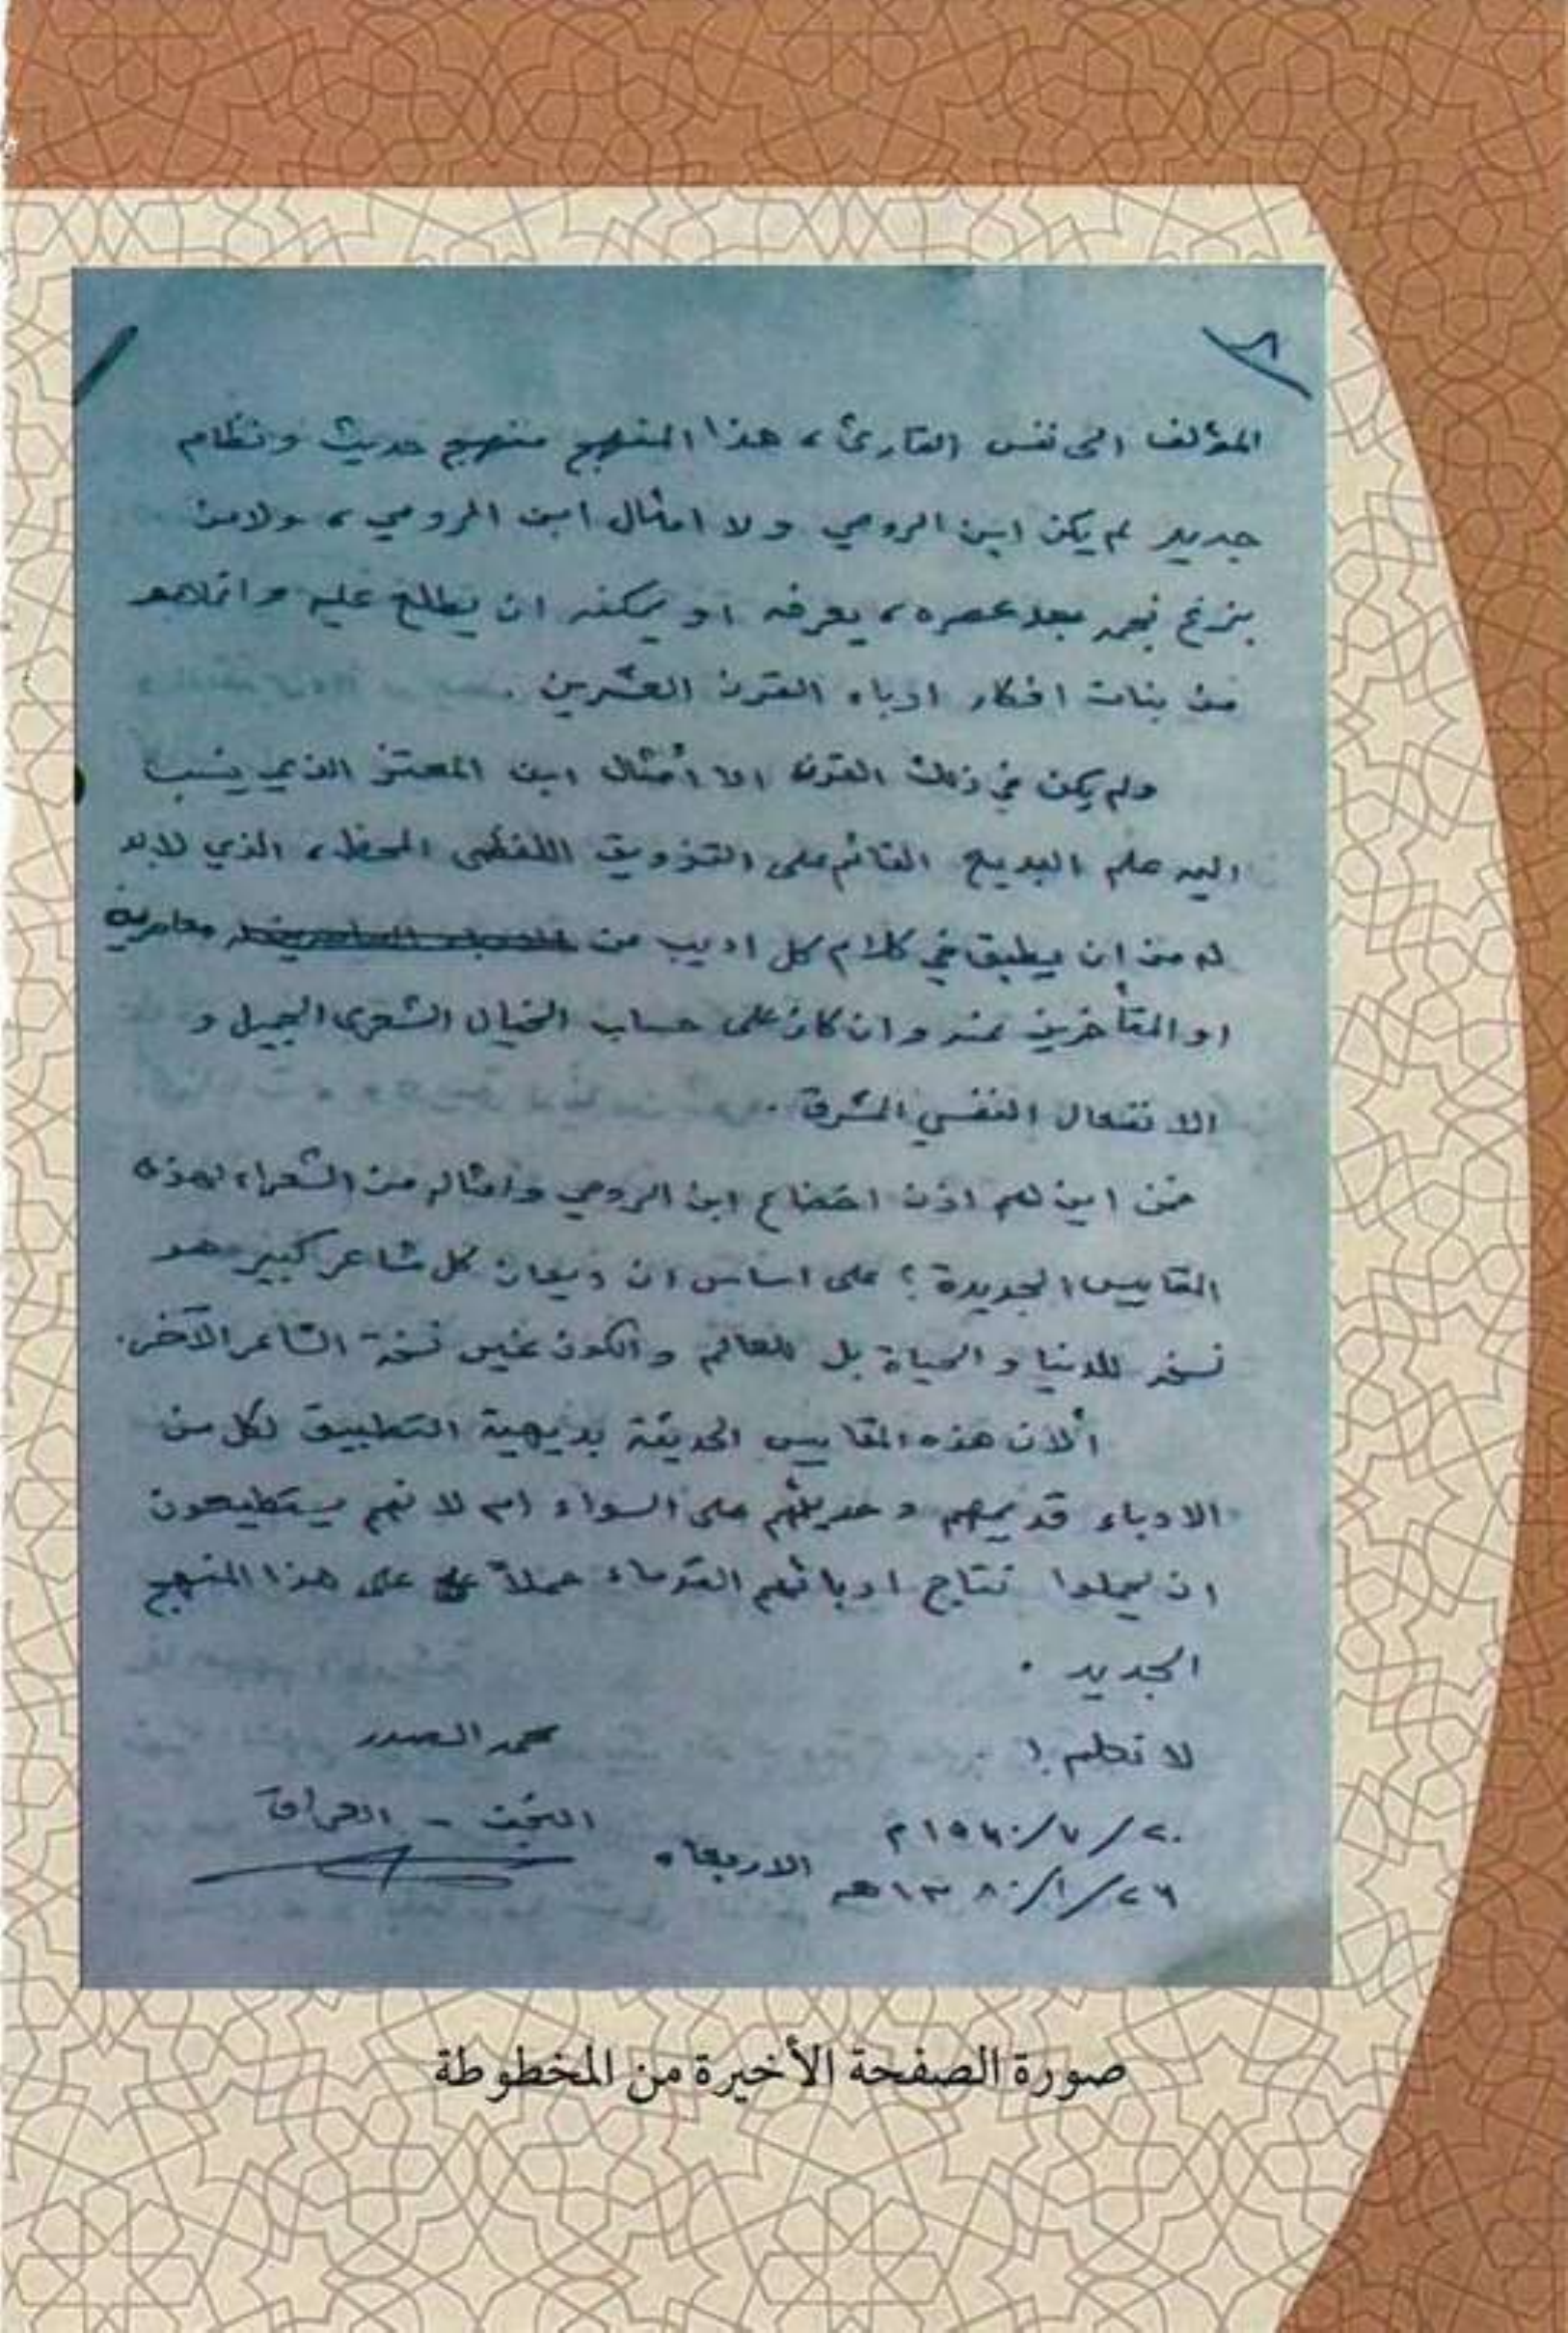 المؤلف الى نفس القارئ، هذا المنهج منهج حديث ونظام
جديد لم يكن ابن الرومي ولا امثال ابن الرومي، ولا من
بزغ نجمه بعد عصره، يعرفه او يمكنه ان يطلع عليه وانما هو
من بنات افكار ادباء القرن العشرين .
ولم يكن في ذلك القرن الا أمثال ابن المعتز الذي ينسب
اليه علم البديع القائم على التزويق اللفظي المحظ، الذي لابد
له من ان يطبق في كلام كل اديب من معاصريه
او المتأخرين عنه وان كان على حساب الخيال الشعري الجميل و
الانفعال النفسي المشرق .
فمن اين لهم اذن اخضاع ابن الرومي وامثاله من الشعراء لهذه
المقاييس الجديدة ؟ على اساس ان ديوان كل شاعر كبير هو
نسخه للدنيا والحياة بل للعالم والكون غير نسخة الشاعر الآخر.
ألان هذه المقاييس الحديثة بديهية التطبيق لكل من
الادباء قديمهم وحديثهم على السواء ام لانهم يستطيعون
ان يحملوا نتاج ادبائهم القدماء حملاً على هذا المنهج
الجديد .
لا تظلم !
محمد الصدر
النجف - العراق
٢٠/٧/١٩٦٠م
الاربعاء
٢٦/١/١٣٨٠هـ
صورة الصفحة الأخيرة من المخطوطة